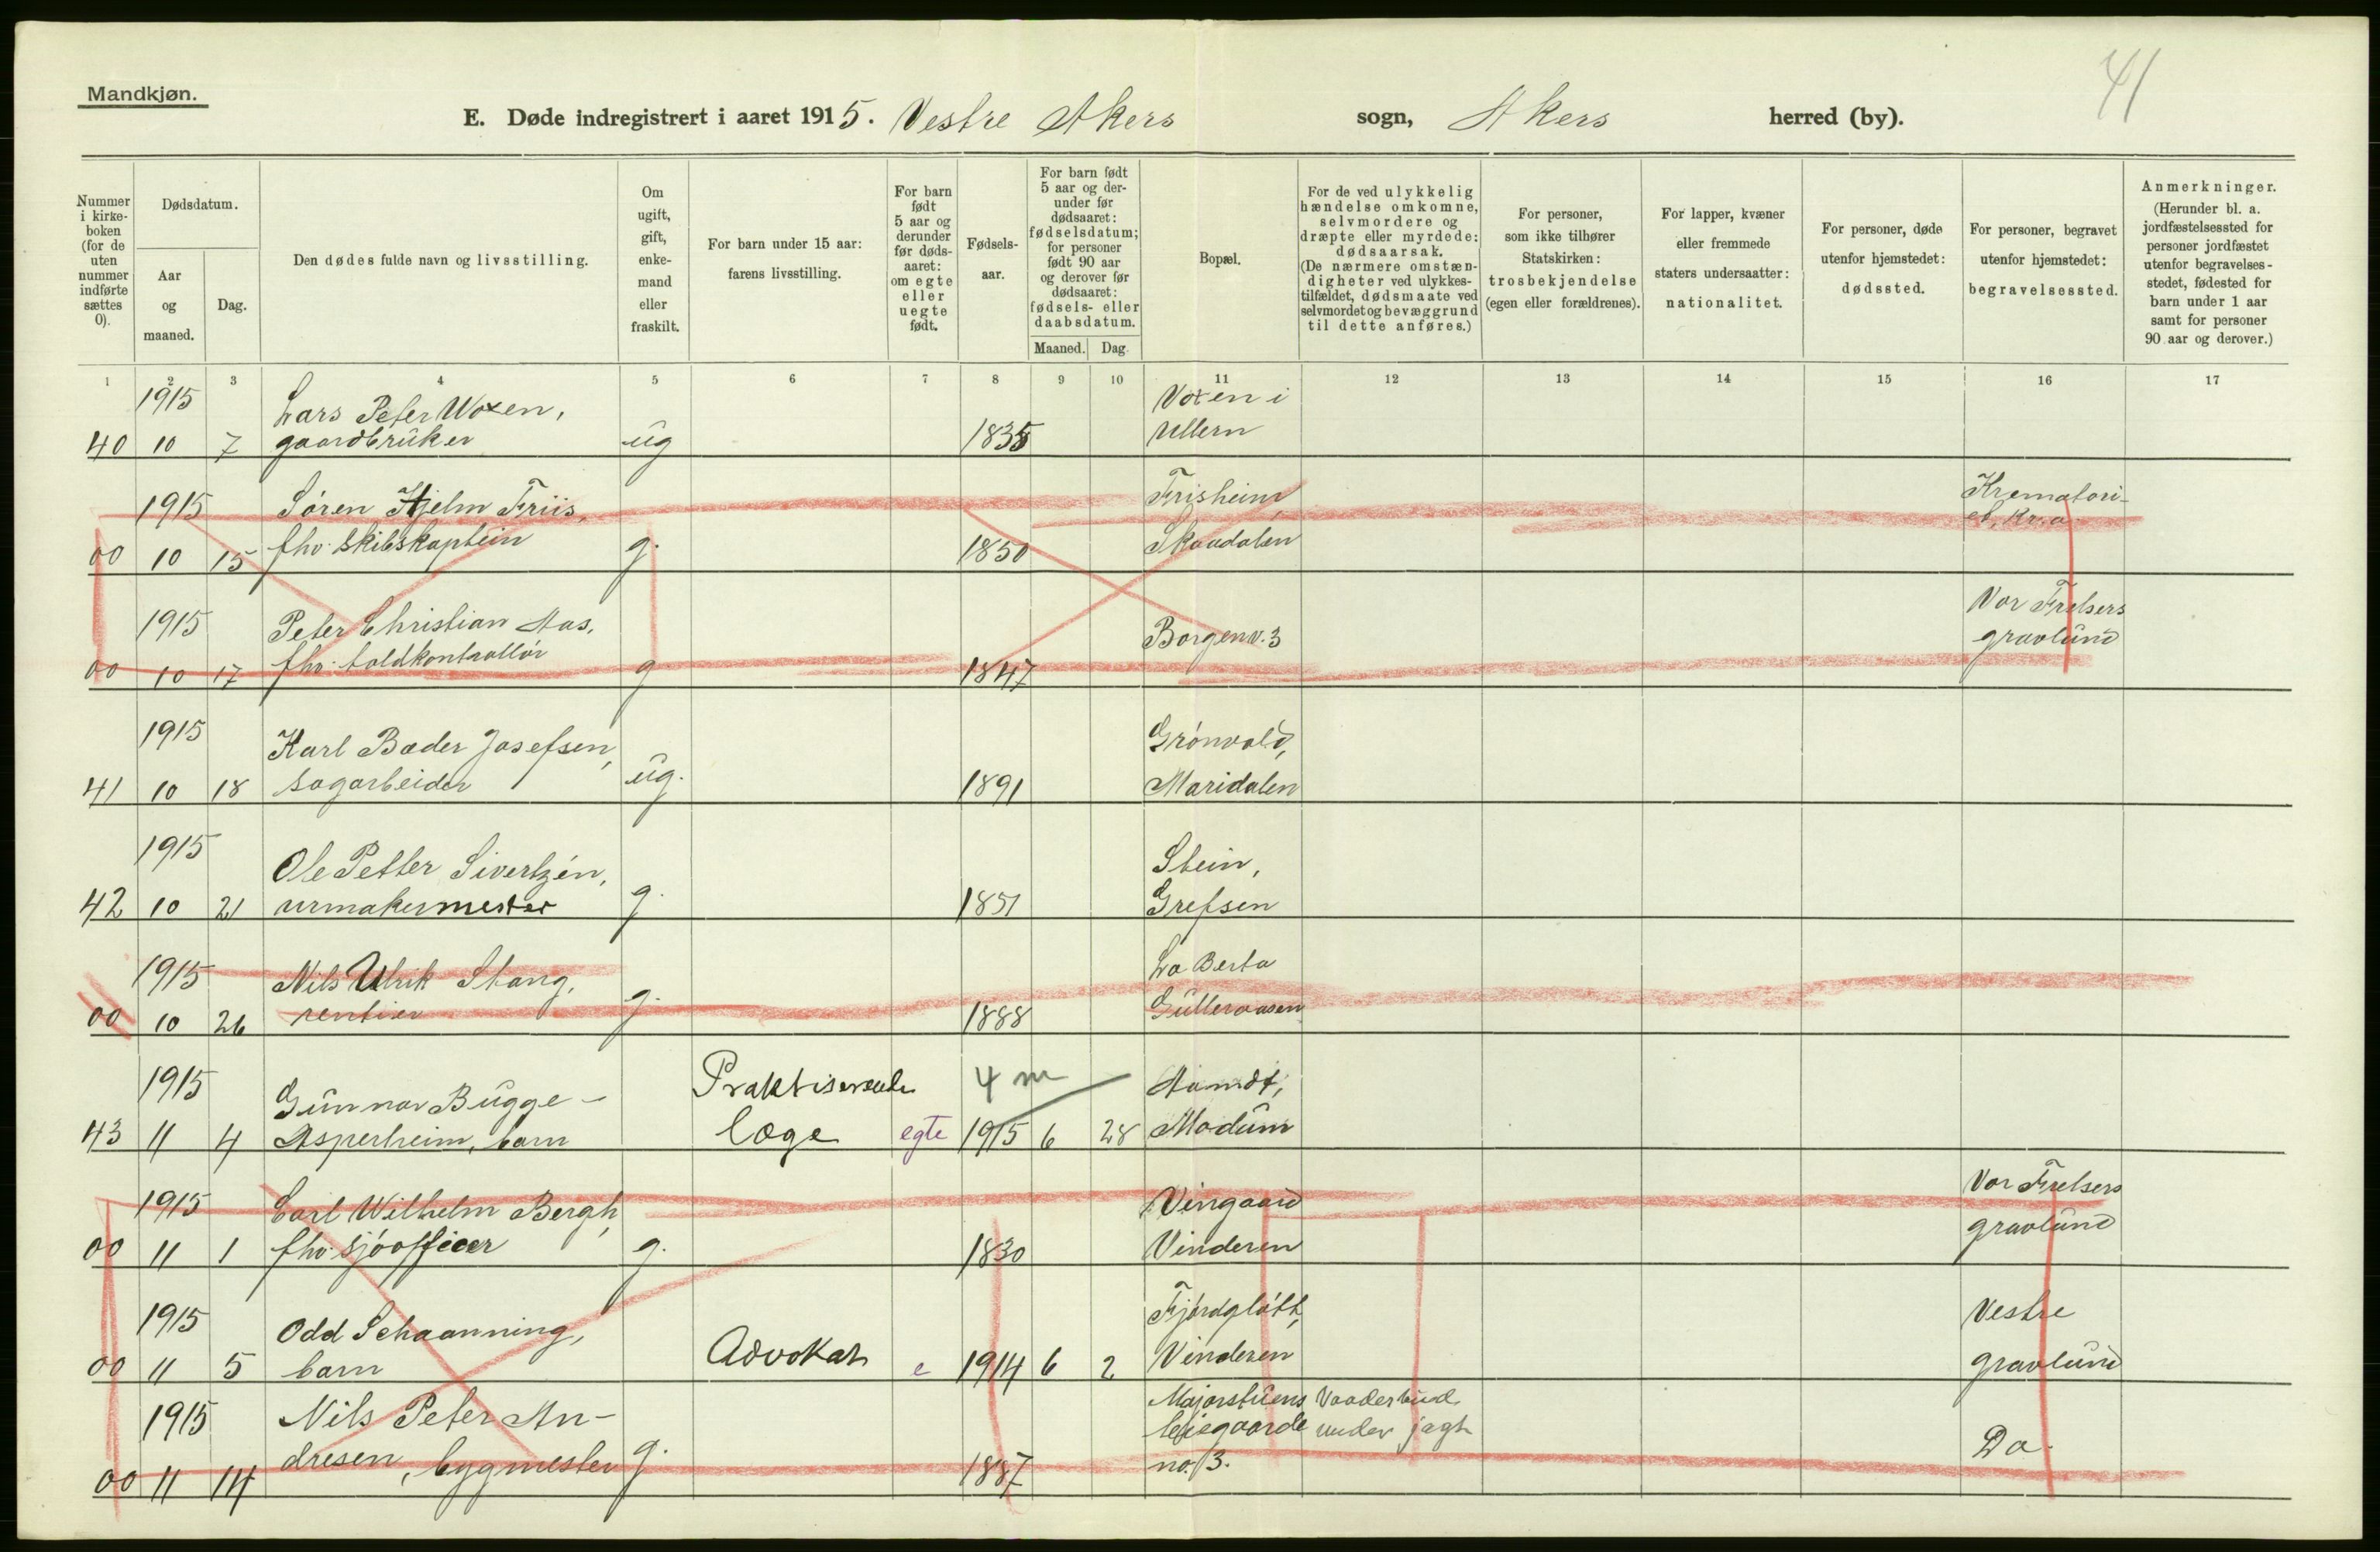 41
Mandkjøn.
E. Døde indregistrert i aaret 1915. Vestre Akers sogn, Akers herred (by).
Nummer i kirke-boken (for de uten nummer indførte sættes 0).
Dødsdatum.
Aar og maaned.
Dag.
Den dødes fulde navn og livsstilling.
Om ugift, gift, enke-mand eller fraskilt.
For barn under 15 aar: farens livsstilling.
For barn født 5 aar og derunder før døds-aaret: om egte eller uegte født.
Fødsels-aar.
For barn født 5 aar og der-under før dødsaaret: fødselsdatum; for personer født 90 aar og derover før dødsaaret: fødsels- eller daabsdatum.
Maaned. Dag.
Bopæl.
For de ved ulykkelig hændelse omkomne, selvmordere og dræpte eller myrdede: dødsaarsak. (De nærmere omstæn-digheter ved ulykkes-tilfældet, dødsmaate ved selvmordet og bevæggrund til dette anføres.)
For personer, som ikke tilhører Statskirken: trosbekjendelse (egen eller forældrenes).
For lapper, kvæner eller fremmede staters undersaatter: nationalitet.
For personer, døde utenfor hjemstedet: dødssted.
For personer, begravet utenfor hjemstedet: begravelsessted.
Anmerkninger. (Herunder bl. a. jordfæstelsessted for personer jordfæstet utenfor begravelses-stedet, fødested for barn under 1 aar samt for personer 90 aar og derover.)
1 2 3 4 5 6 7 8 9 10 11 12 13 14 15 16 17
1915 Lars Peter Woxen, Voxen i
40 10 7 gaardbruker ug 1835 Ullern
1915 Søren Hjelm Friis, Frisheim, Krematori-
00 10 15 fhv. skibskaptein g. 1850 Skaadalen et, Kr.a
1915 Peter Christian Aas, Borgenv. 3 Vor Frelsers
00 10 17 fhv. toldkontrollør g 1847 gravlund
1915 Karl Bæder Josefsen, Grönvold,
41 10 18 sagarbeider ug. 1891 Maridalen
1915 Ole Petter Sivertzén, Stein,
42 10 21 urmakermester g. 1851 Grefsen
1915 Nils Ulrik Stang, La Berta
00 10 26 rentier g. 1888 Gulleraasen
1915 Gunnar Bugge- Praktiserende 4 m
43 11 4 Asperheim, barn læge egte 1915 6 28 Modum
1915 Carl Wilhelm Bergh, Vingaard Vor Frelsers
00 11 1 fhv. sjøofficer g. 1830 Vinderen gravlund
1915 Odd Schaanning, Fjordgløtt, Vestre
00 11 5 barn Advokat e 1914 6 2 Vinderen gravlund
1915 Nils Peter An- Majorstuens Vaadeskud
dresen, bygmester leiegaarde under jagt
00 11 14 g. 1887 no. 3. Do.